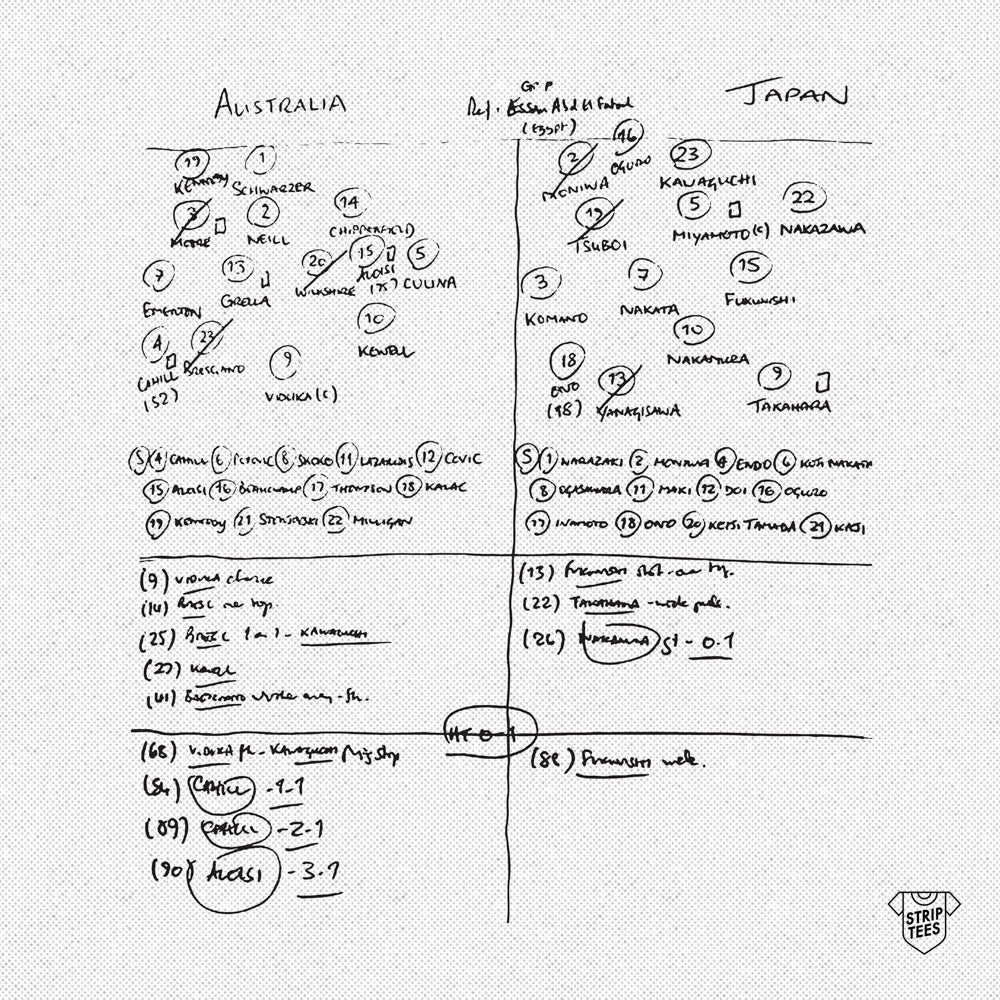 AUSTRALIA
GRP F
Ref: Essam Abd El Fatah
(Egypt)
JAPAN
19 KENNEDY
1 SCHWARZER
3 MOORE
2 NEILL
14 CHIPPERFIELD
7 EMERTON
13 GRELLA
20 WILKSHIRE
15 ALOISI (75)
5 CULINA
10 KEWELL
4 CAHILL (52)
23 BRESCIANO
9 VIDUKA (C)
2 MONIWA
16 OGURO
23 KAWAGUCHI
19 TSUBOI
5 MIYAMOTO (C)
22 NAKAZAWA
3 KOMANO
7 NAKATA
15 FUKUNISHI
10 NAKAMURA
18 ONO
13 YANAGISAWA
9 TAKAHARA
S 4 CAHILL 6 POPOVIC 8 SKOKO 11 LAZARIDIS 12 COVIC
15 ALOISI 16 BEAUCHAMP 17 THOMPSON 18 KALAC
19 KENNEDY 21 STERJOVSKI 22 MILLIGAN
S 1 NARAZAKI 2 MONIWA 4 ENDO 6 KOJI NAKATA
8 OGASAWARA 11 MAKI 12 DOI 16 OGURO
17 INAMOTO 18 ONO 20 KEIJI TAMADA 21 KAJI
(9) VIDUKA chance
(14) BRESC
(25) BRESC 1 on 1 - KAWAGUCHI
(27) KEWELL
(41) BRESCIANO
(13) FUKUNISHI shot - over
(22) TAKAHARA - wide
(26) NAKAMURA - 0.1
HT 0-1
(68) VIDUKA fk - KAWAGUCHI
(84) CAHILL - 1-1
(89) CAHILL - 2-1
(90) ALOISI - 3.1
FUKUNISHI wide.
STRIP
TEES